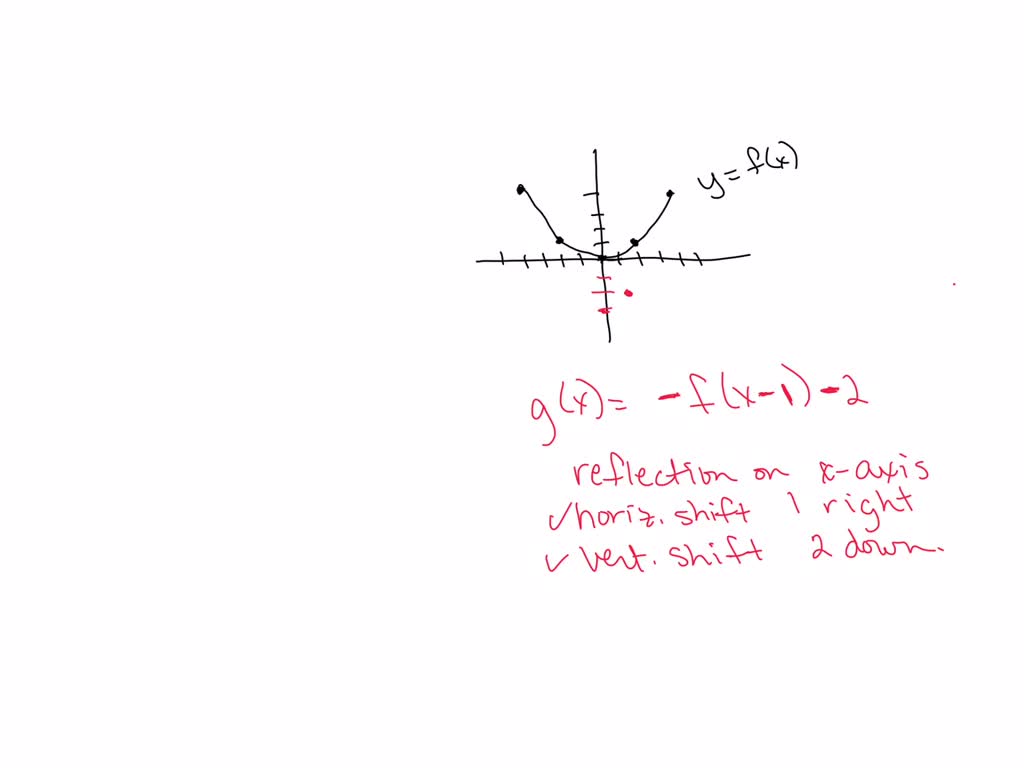 y = f(x)
g(x) = -f(x-1)-2
reflection on x-axis
✓horiz. shift 1 right
✓ vert. shift 2 down.